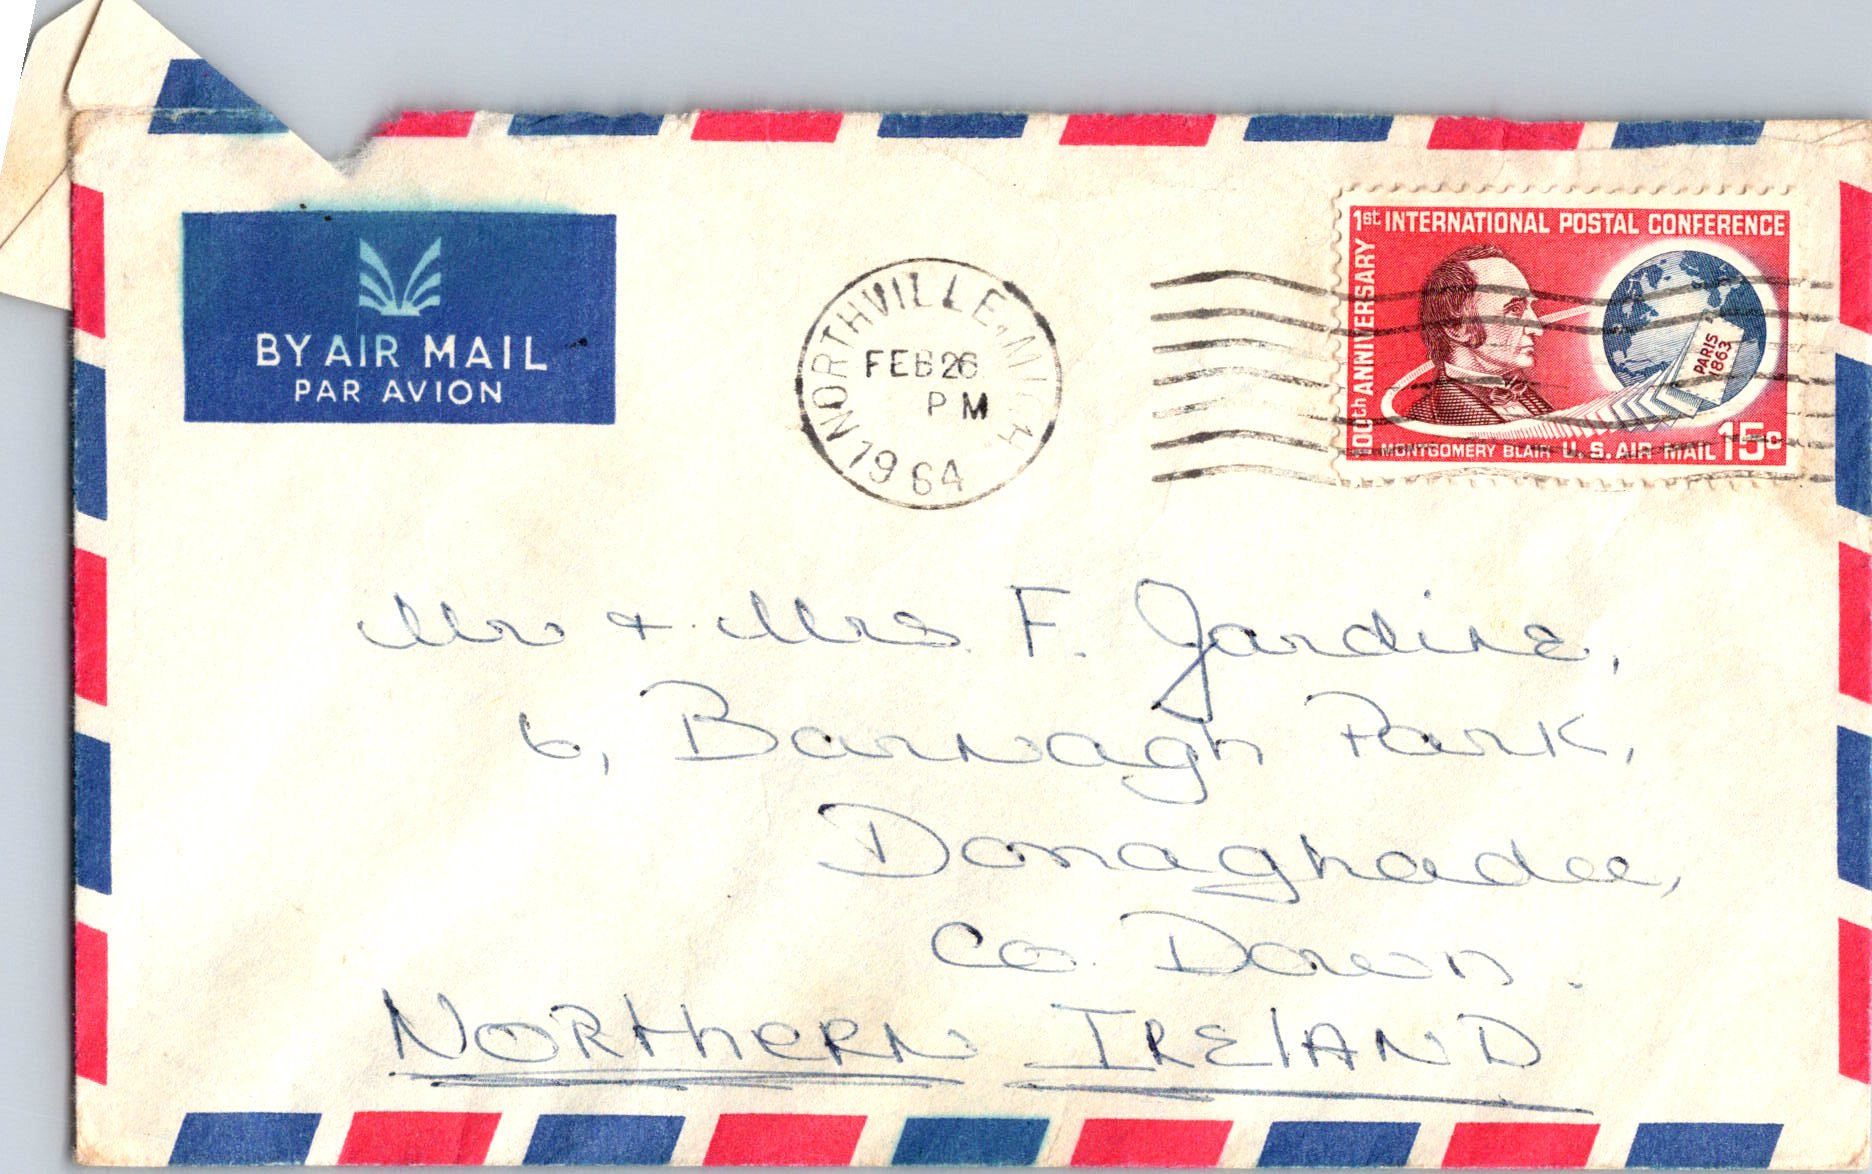 BY AIR MAIL
PAR AVION
NORTHVILLE, MICH.
FEB 26
PM
1964
1st INTERNATIONAL POSTAL CONFERENCE
100th ANNIVERSARY
PARIS
1863
MONTGOMERY BLAIR U.S. AIR MAIL 15c
Mr + Mrs F. Jardine,
6, Barnagh Park,
Donaghadee,
Co. Down.
NORThERN IRElAND